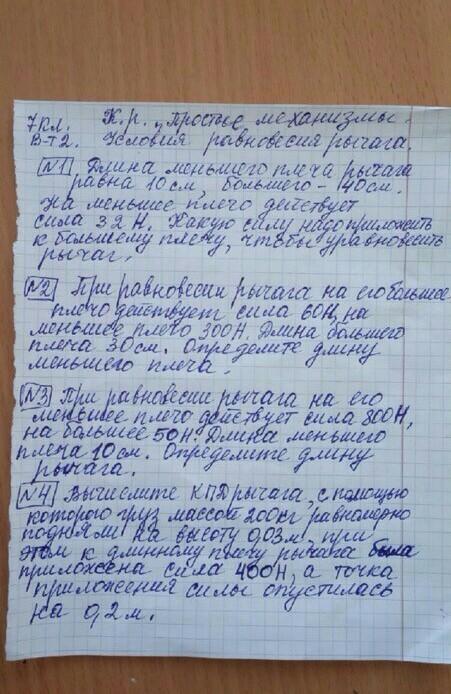 7 кл. К.р. „Простые механизмы.
В-т 2. Условия равновесия рычага.
№1 Длина меньшего плеча рычага
равна 10 см, большего - 40 см.
На меньшее плечо действует
сила 32 Н. Какую силу надо приложить
к большему плечу, чтобы уравновесить
рычаг.
№2 При равновесии рычага на его большее
плечо действует сила 60Н, на
меньшее плечо 300Н. Длина большего
плеча 30 см. Определите длину
меньшего плеча.
№3 При равновесии рычага на его
меньшее плечо действует сила 800Н,
на большее 50Н. Длина меньшего
плеча 10 см. Определите длину
рычага.
№4 Вычислите КПД рычага, с помощью
которого груз массой 200кг равномерно
подняли на высоту 0,03м при
этом к длинному плечу рычага была
приложена сила 400Н, а точка
приложения силы опустилась
на 0,2 м.